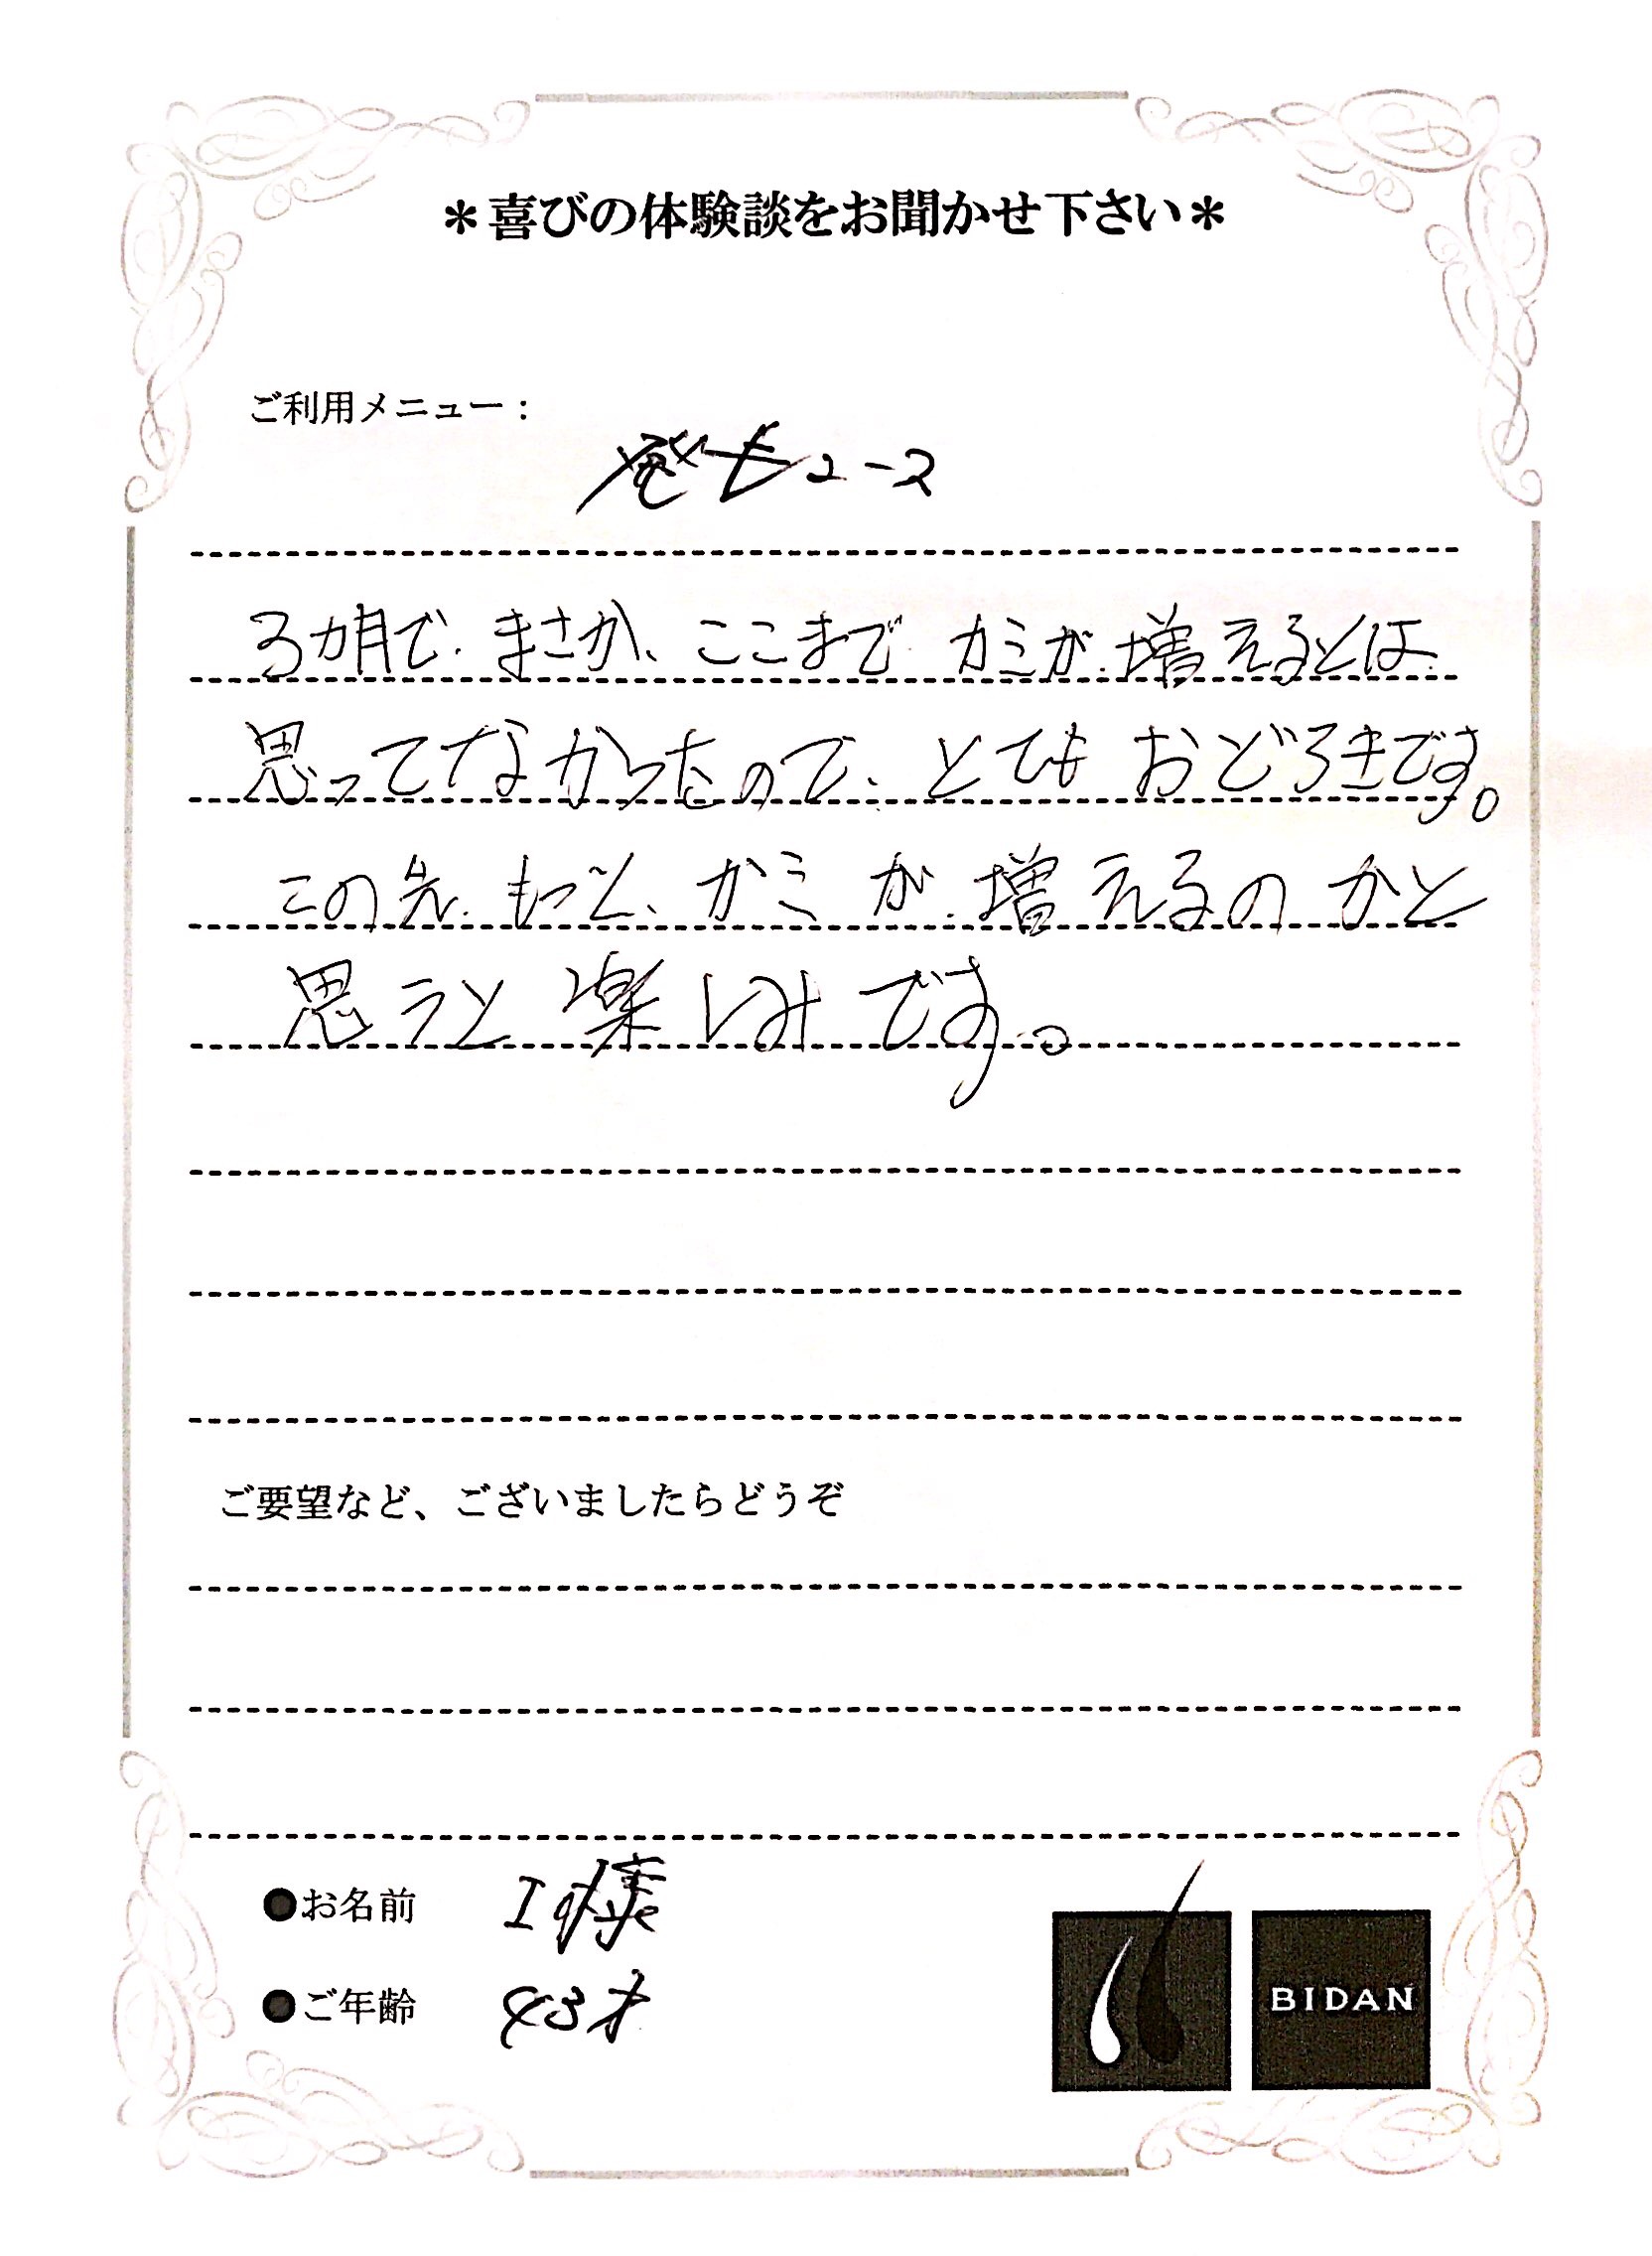 ＊喜びの体験談をお聞かせ下さい＊
ご利用メニュー：
発毛コース
3カ月で、まさか、ここまでカミが増えるとは
思ってなかったので、とてもおどろきです。
この先、もっと、カミが増えるのかと
思うと楽しみです。
ご要望など、ございましたらどうぞ
●お名前 I 様
●ご年齢 43才
BIDAN